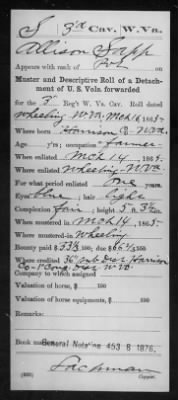 S 3d Cav. W. Va.
Allison Sapp
Appears with rank of Pvt on
Muster and Descriptive Roll of a Detach-
ment of U. S. Vols. forwarded
for the 3 Reg't W. Va. Cav. Roll dated
Wheeling W Va Mch 16, 1865.
Where born Harrison Co W Va
Age y'rs; occupation farmer
When enlisted Mch 14, 1865.
Where enlisted Wheeling W Va
For what period enlisted one years.
Eyes blue; hair light
Complexion fair; height 5 ft. in.
When mustered in Mch 14, 1865.
Where mustered in Wheeling
Bounty paid $33 1/3 100; due $66 2/3 100
Where credited Harrison
Co W Va
Company to which assigned
Valuation of horse, $ 100
Valuation of horse equipments, $ 100
Remarks:
Book mark: General Notation 453 B 1876.
Lachman
Copyist.